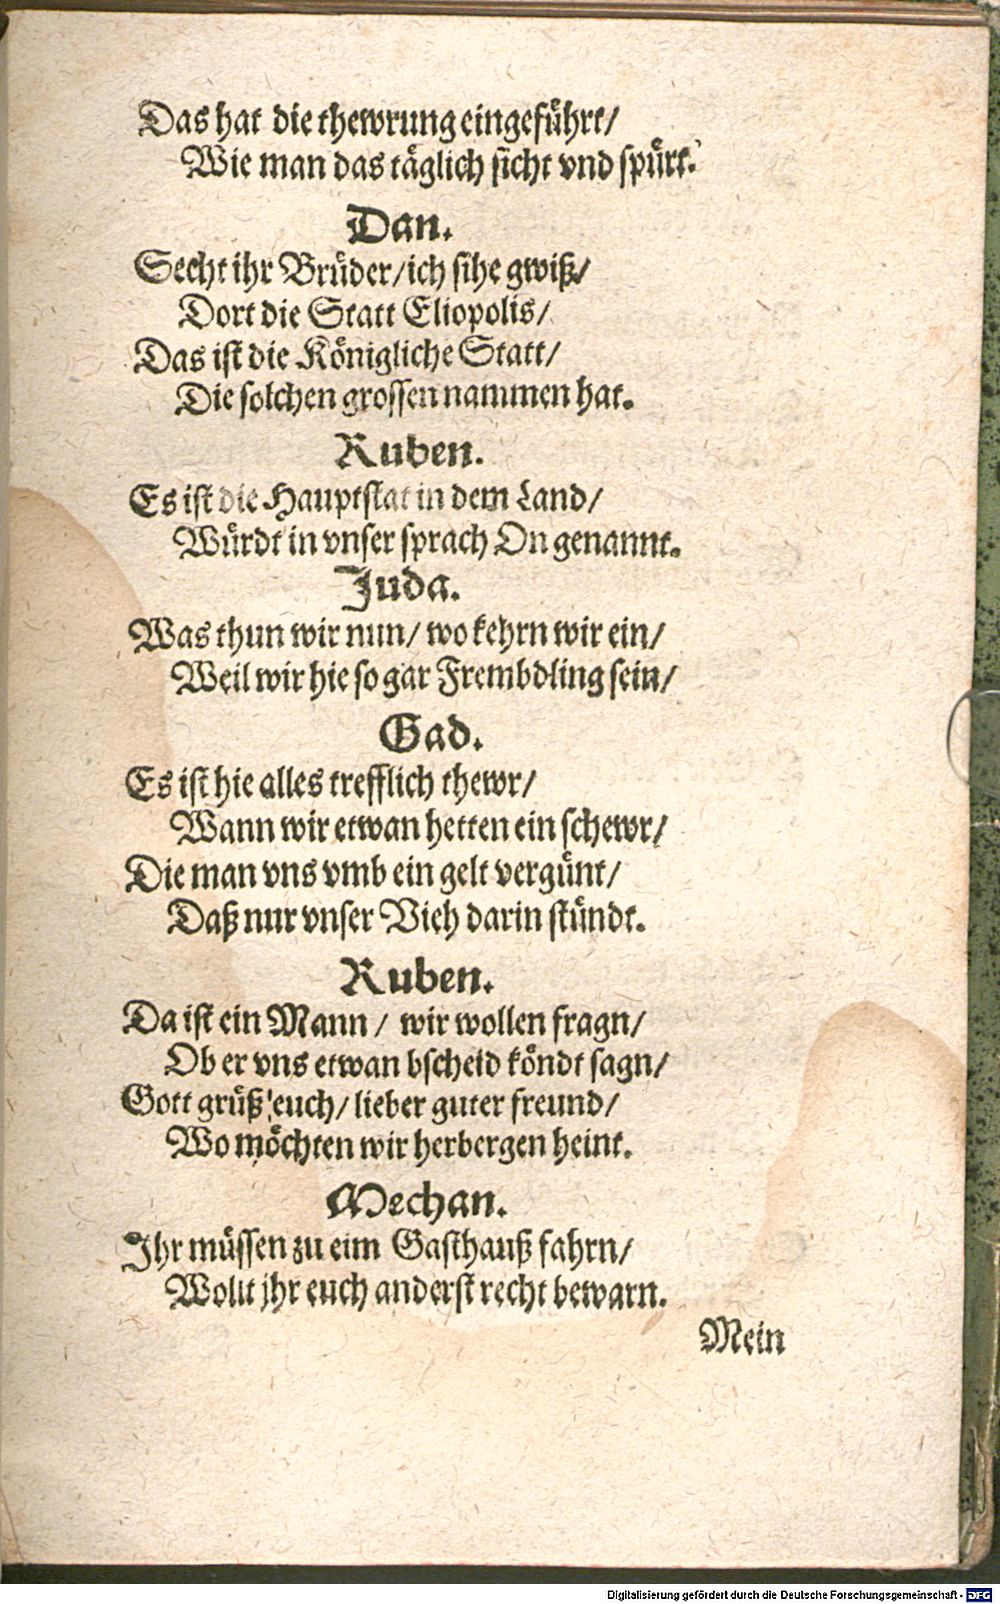 Das hat die thewrung eingeführt/
Wie man das täglich sicht vnd spürt.
Dan.
Secht ihr Brüder/ich sihe gwiß/
Dort die Statt Eliopolis/
Das ist die Königliche Statt/
Die solchen grossen nammen hat.
Ruben.
Es ist die Hauptstat in dem Land/
Würdt in vnser sprach On genannt.
Juda.
Was thun wir nun/ wo kehrn wir ein/
Weil wir hie so gar Frembdling sein/
Gad.
Es ist hie alles trefflich thewr/
Wann wir etwan hetten ein schewr/
Die man vns vmb ein gelt vergünt/
Daß nur vnser Vieh darin stündt.
Ruben.
Da ist ein Mann/ wir wollen fragn/
Ob er vns etwan bscheid köndt sagn/
Gott grüß euch/ lieber guter freund/
Wo möchten wir herbergen heint.
Mechan.
Ihr müssen zu eim Gasthauß fahrn/
Wollt jhr euch anderst recht bewarn.
Mein
Digitalisierung gefördert durch die Deutsche Forschungsgemeinschaft - DFG